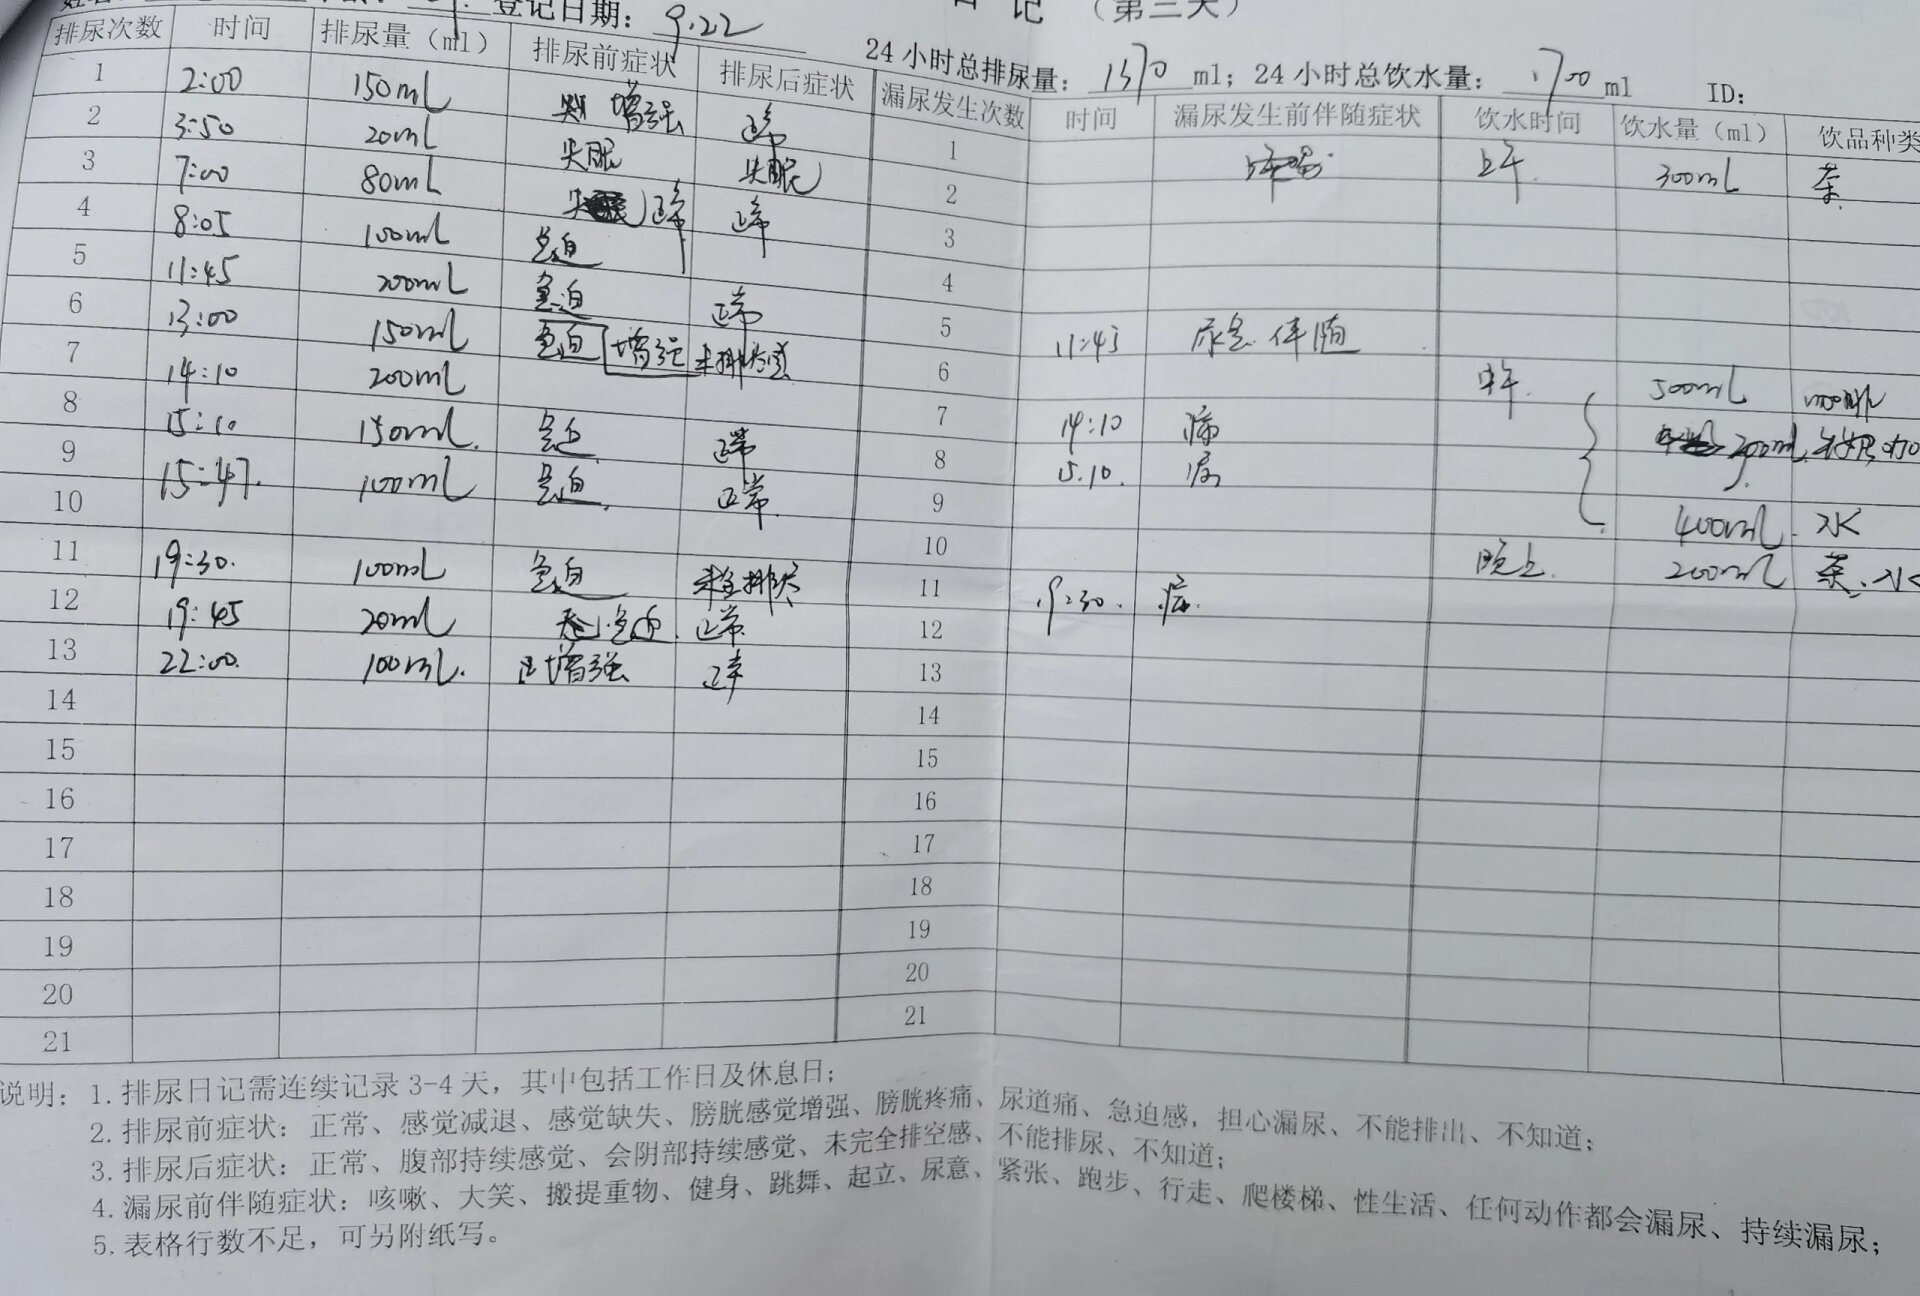 登记日期：9.22 日 记 （第三天）
24小时总排尿量：1370 ml；24小时总饮水量：1700 ml ID：
排尿次数 时间 排尿量（ml） 排尿前症状 排尿后症状 漏尿发生次数 时间 漏尿发生前伴随症状 饮水时间 饮水量（ml） 饮品种类
1 2:00 150mL 增强 正常 1 上午 300mL 茶
2 3:50 20mL 失眠 失眠 2
3 7:00 80mL 正常 正常 3
4 8:05 100mL 急迫 4
5 11:45 200mL 急迫 正常 5 11:45 尿急 伴随
6 13:00 150mL 急迫 增强 未排尽感 6 中午 500mL
7 14:10 200mL 7 14:10
8 15:10 150mL. 急迫 正常 8 15.10. 200mL
9 15:47. 100mL 急迫. 正常. 9 400mL. 水
10 10 晚上. 200mL 茶、水
11 19:30. 100mL 急迫 未全排尽 11 19:30.
12 19:45 20mL 急迫. 正常. 12
13 22:00. 100mL. 增强 正常 13
14 14
15 15
16 16
17 17
18 18
19 19
20 20
21 21
说明：1.排尿日记需连续记录3-4天，其中包括工作日及休息日；
2.排尿前症状：正常、感觉减退、感觉缺失、膀胱感觉增强、膀胱疼痛、尿道痛、急迫感，担心漏尿、不能排出、不知道；
3.排尿后症状：正常、腹部持续感觉、会阴部持续感觉、未完全排空感、不能排尿、不知道；
4.漏尿前伴随症状：咳嗽、大笑、搬提重物、健身、跳舞、起立、尿意、紧张、跑步、行走、爬楼梯、性生活、任何动作都会漏尿、持续漏尿；
5.表格行数不足，可另附纸写。